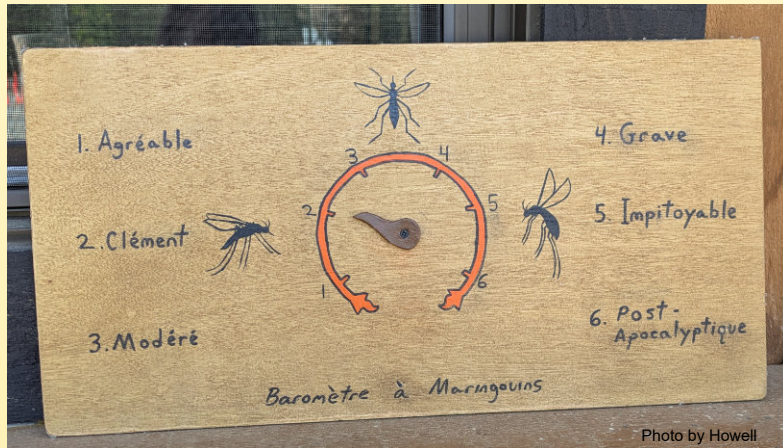 1. Agréable
2. Clément
3. Modéré
1
2
3
4
5
6
4. Grave
5. Impitoyable
6. Post-
Apocalyptique
Baromètre à Maringouins
Photo by Howell